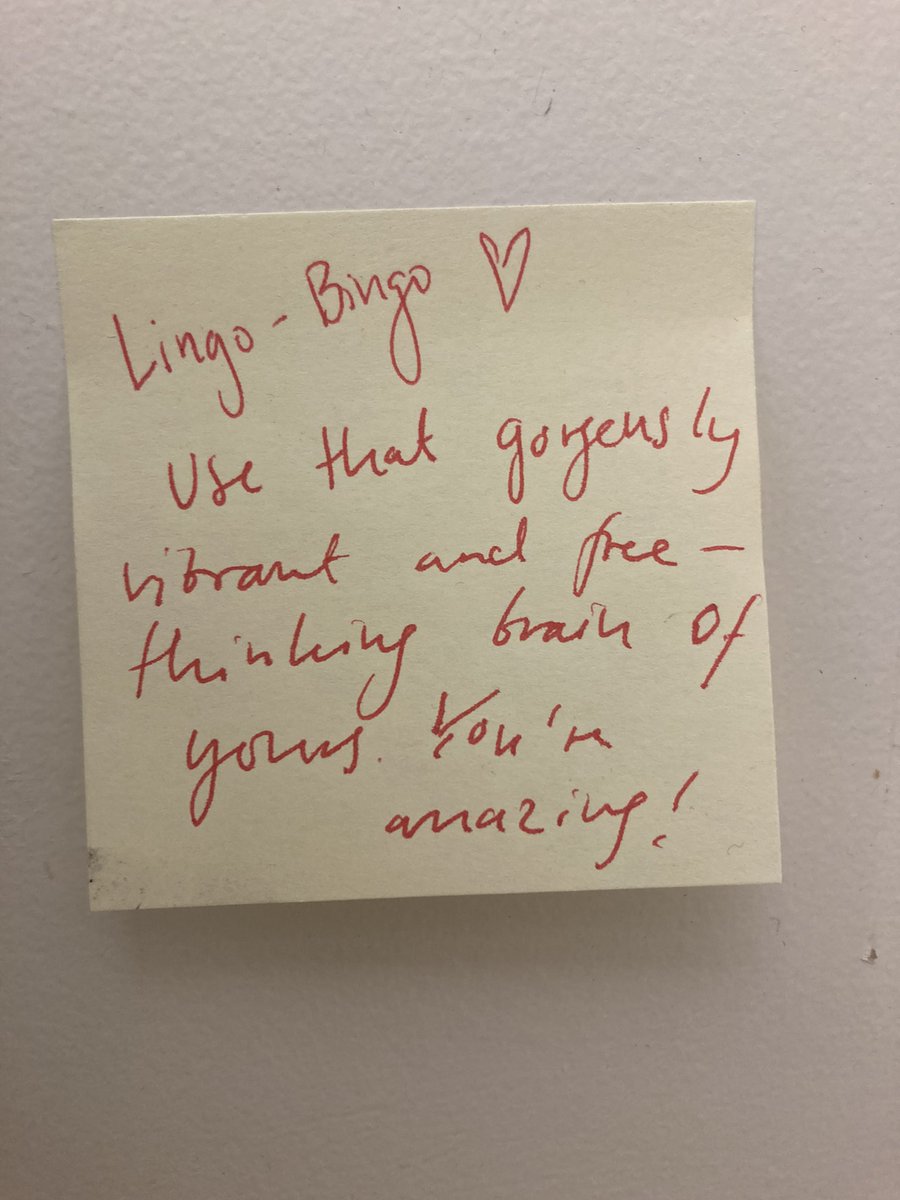 Lingo-Bingo ♡
Use that gorgeusly
vibrant and free-
thinking brain of
yours. You're
amazing!